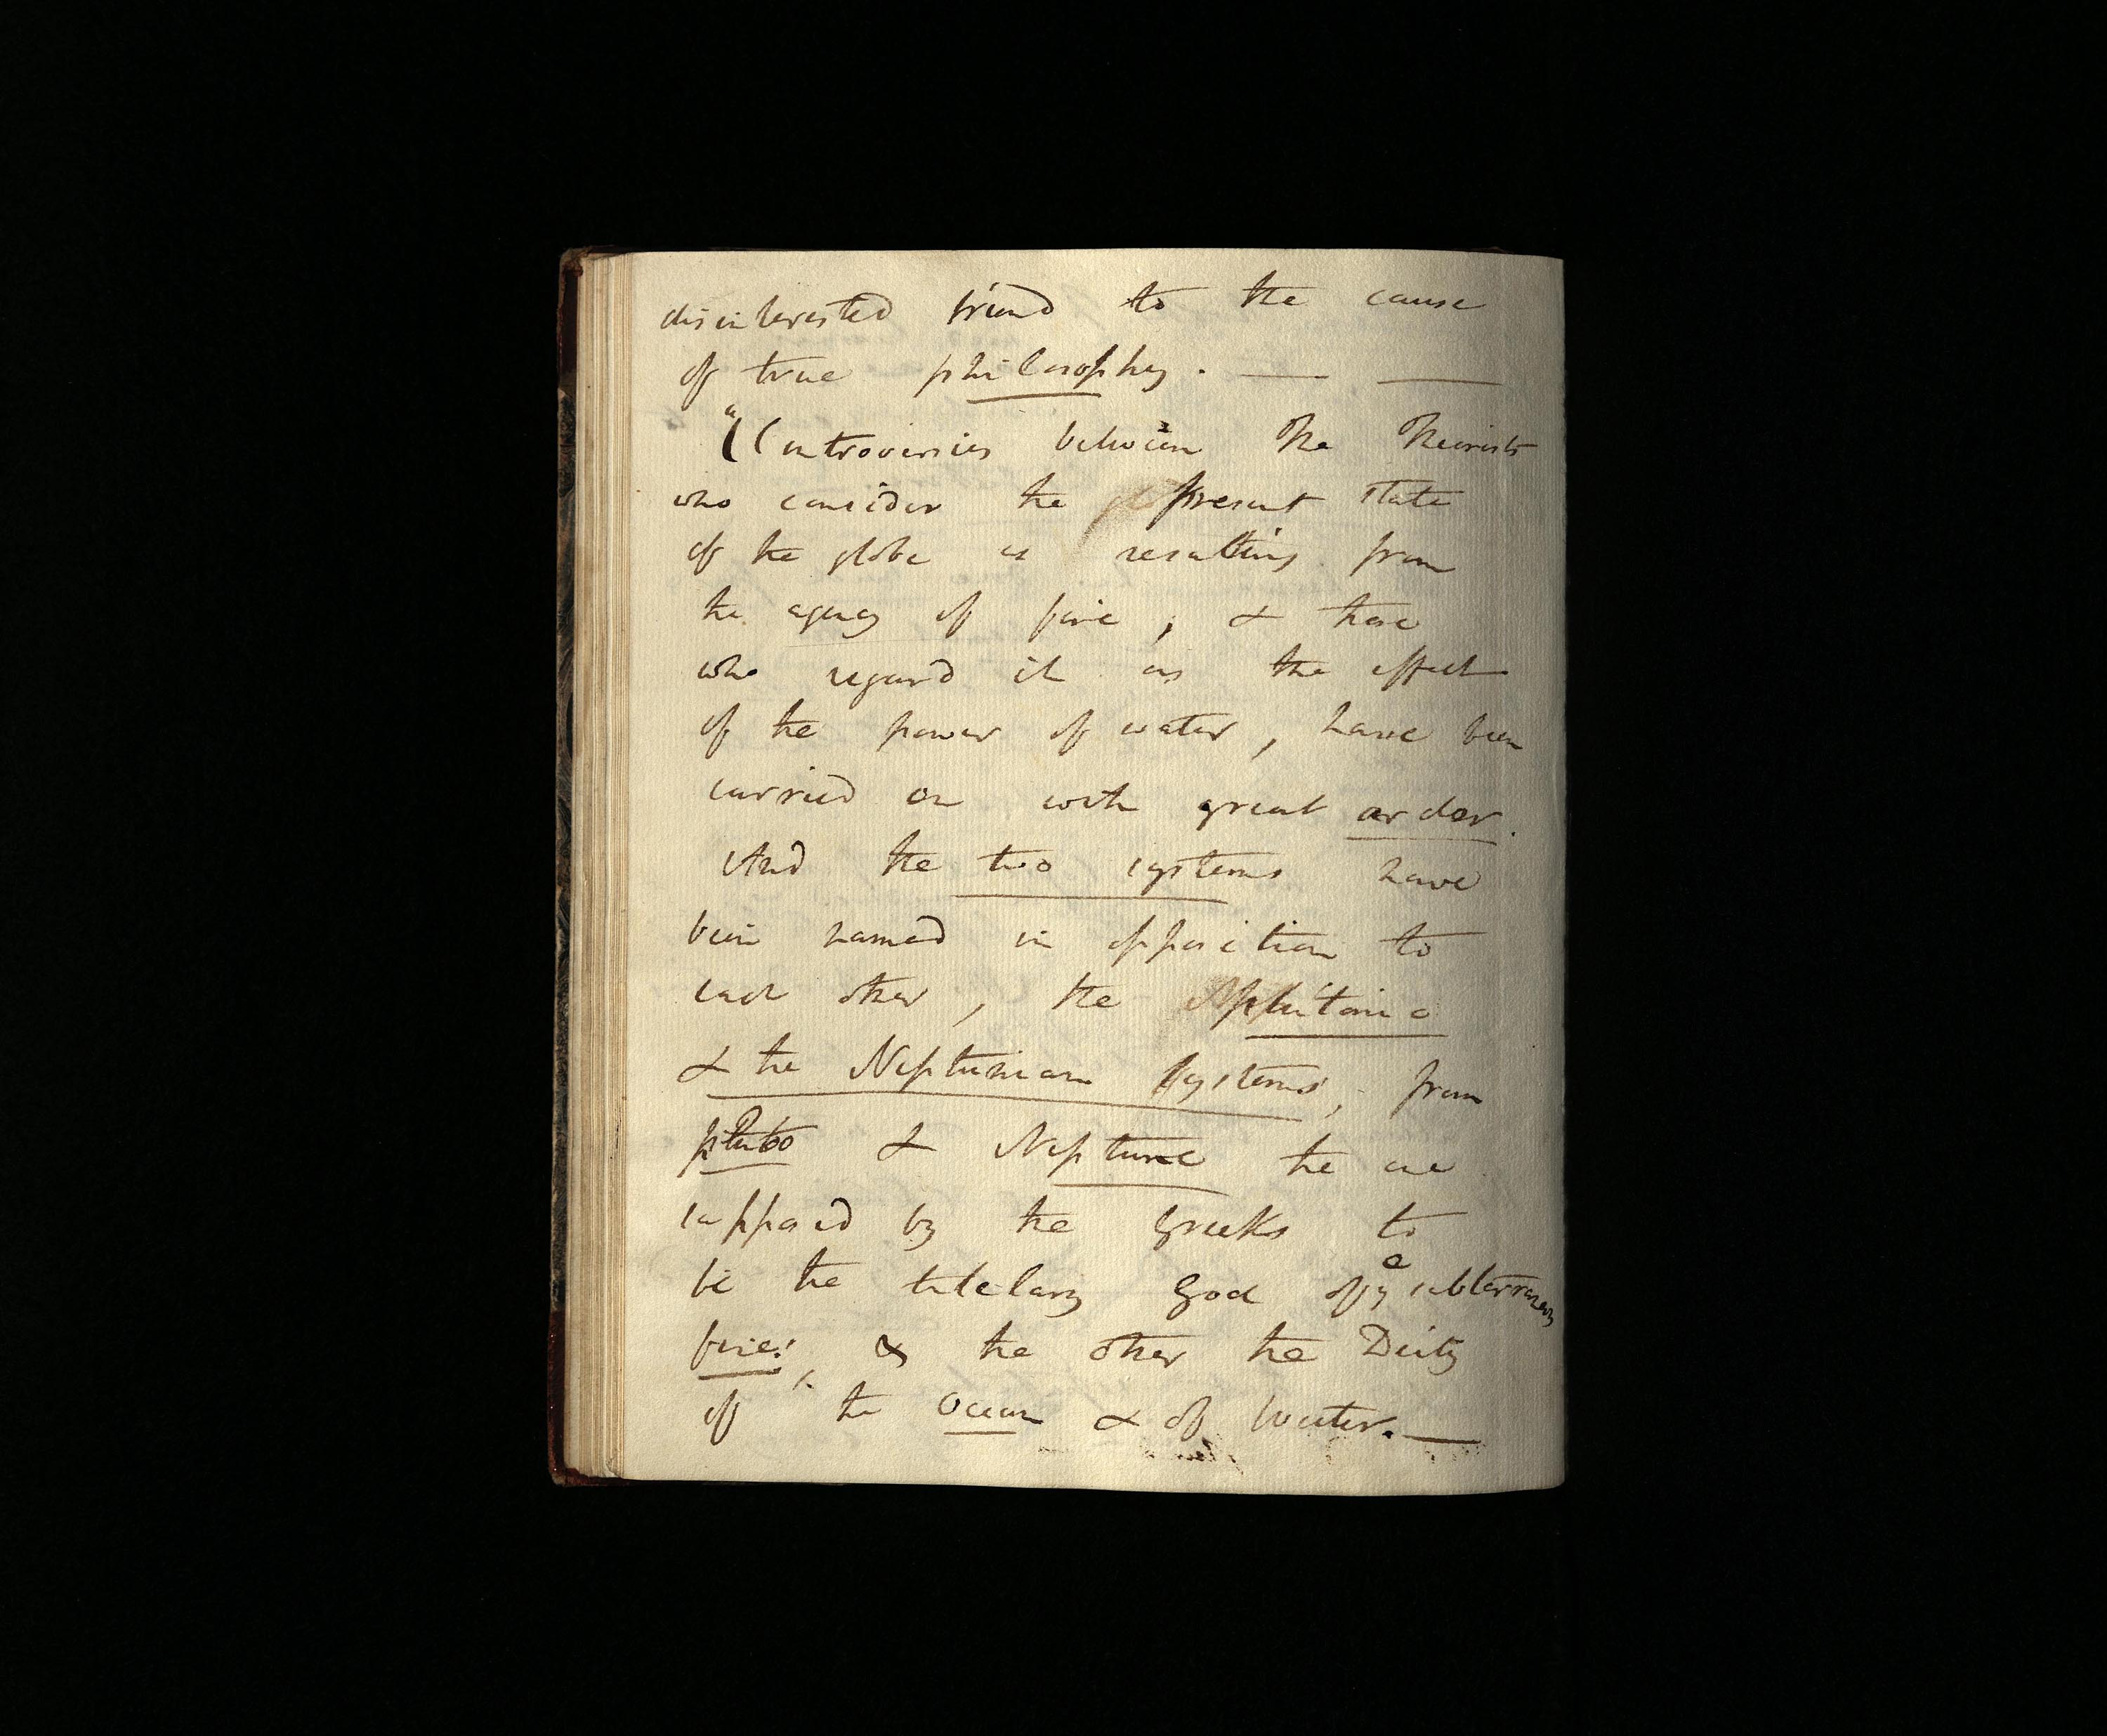 disinterested friend to the cause
of true philosophy. — —
"(Controversies between The Theorists
who consider the present state
of the globe as resulting from
the agency of fire; & those
who regard it as the effect
of the power of water, have been
carried on with great ardor.
And the two systems have
been named in opposition to
each other, the plutonic
& the Neptunian Systems, from
pluto & Neptune the one
supposed by the Greeks to
be the tutelary God of ye subterranean
fire:, & the other the Deity
of the Ocean & of Water. —